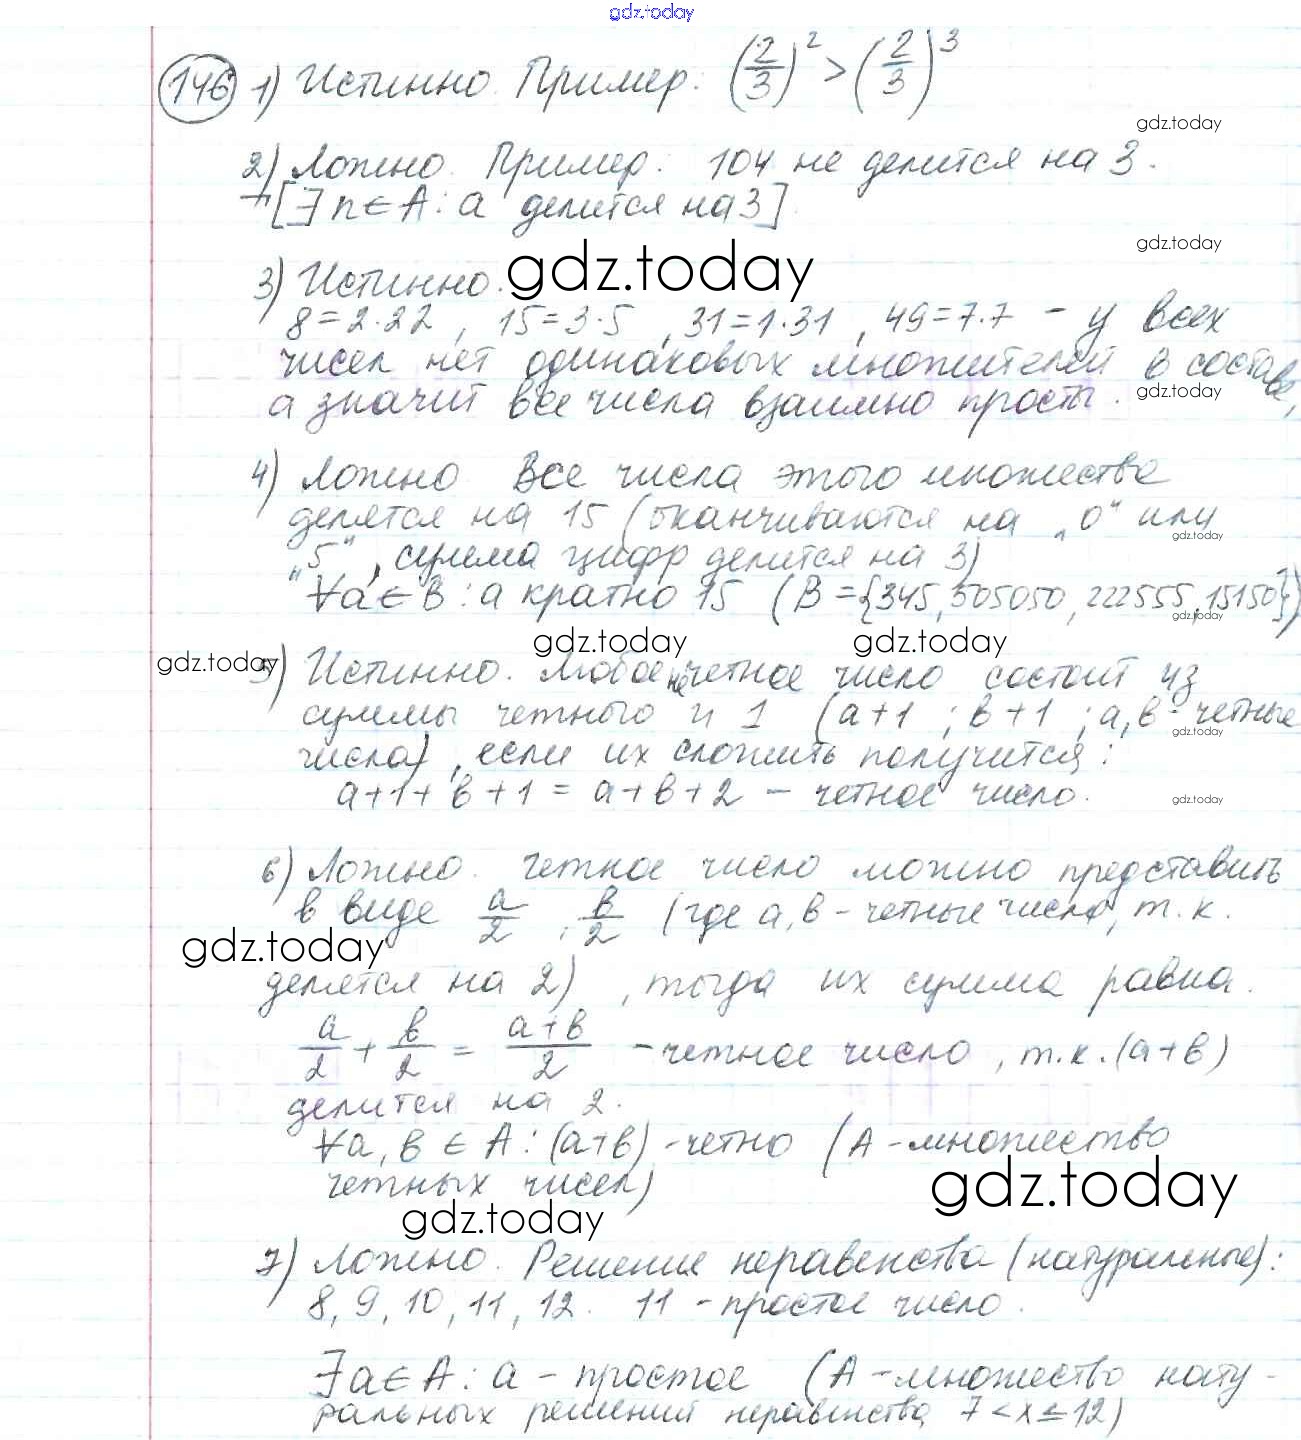 gdz.today
146 1) Истинно. Пример: (2/3)² > (2/3)³
gdz.today
2) Ложно. Пример: 104 не делится на 3.
[∃ n ∈ A: a делится на 3]
gdz.today
3) Истинно. gdz.today
8=2·22, 15=3·5, 31=1·31, 49=7·7 – у всех
чисел нет одинаковых множителей в составе,
gdz.today
а значит все числа взаимно просты.
4) Ложно. Все числа этого множества
делятся на 15 (оканчиваются на „0" или
gdz.today
„5", сумма цифр делится на 3)
∀a ∈ B: a кратно 15 (B = {345, 505050, 222555, 15150})
gdz.today
gdz.today gdz.today
gdz.today 5) Истинно. Любое нечетное число состоит из
суммы четного и 1 (a+1; в+1; a, в - четные
gdz.today
числа), если их сложить получится:
a+1+в+1 = a+в+2 – четное число.
gdz.today
6) Ложно. Четное число можно представить
в виде a/2; в/2 (где a, в – четные числа, т.к.
gdz.today
делятся на 2), тогда их сумма равна.
a/2 + в/2 = (a+в)/2 – четное число, т.к. (a+в)
делится на 2.
∀a, в ∈ A: (a+в) - четно (A – множество
четных чисел) gdz.today
gdz.today
7) Ложно. Решение неравенства (натуральные):
8, 9, 10, 11, 12. 11 – простое число.
∃a ∈ A: a – простое (A – множество нату-
ральных решений неравенства 7 < x ≤ 12)